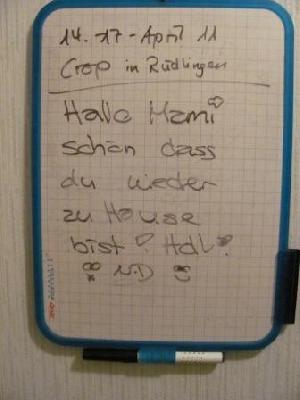 14. - 17 - April 11
Crop in Rüdlingen
Hallo Mami
schön dass
du wieder
zu Hause
bist ♡ Hdl ♡
N.D